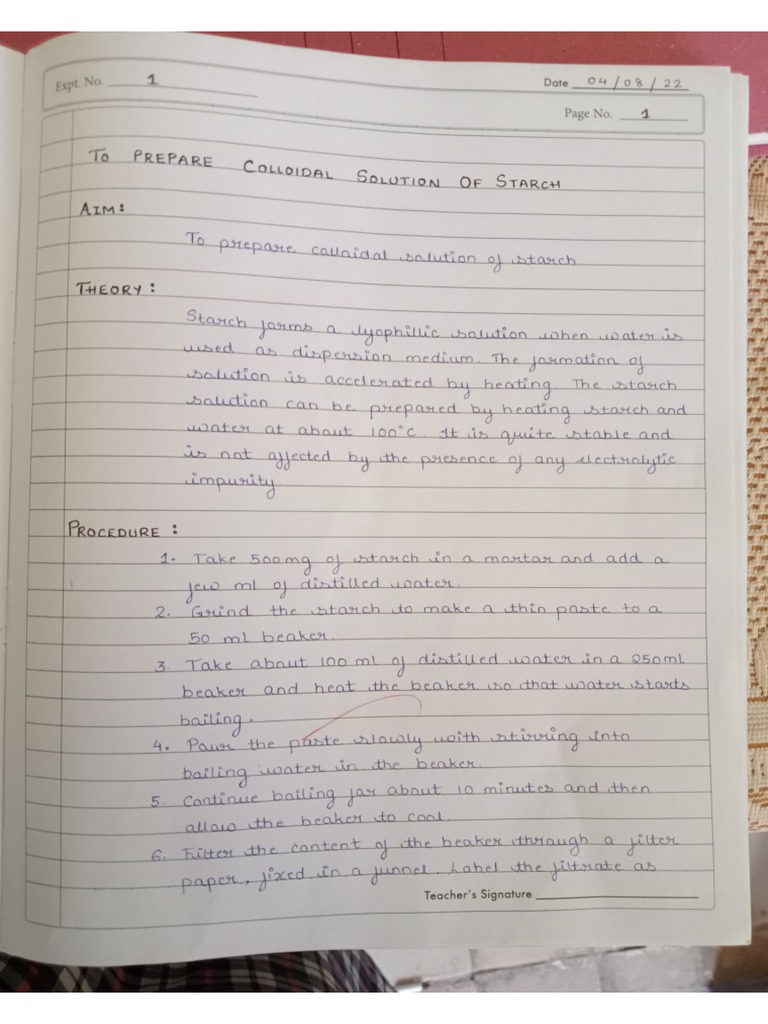 Expt. No. 1
Date 04/08/22
Page No. 1
TO PREPARE COLLOIDAL SOLUTION OF STARCH
AIM:
To prepare colloidal solution of starch
THEORY:
Starch forms a lyophillic solution when water is
used as dispersion medium. The formation of
solution is accelerated by heating. The starch
solution can be prepared by heating starch and
water at about 100°C. It is quite stable and
is not affected by the presence of any electrolytic
impurity
PROCEDURE:
1. Take 500mg of starch in a mortar and add a
few ml of distilled water.
2. Grind the starch to make a thin paste to a
50 ml beaker.
3. Take about 100 ml of distilled water in a 250ml
beaker and heat the beaker so that water starts
boiling.
4. Pour the paste slowly with stirring into
boiling water in the beaker.
5. Continue boiling for about 10 minutes and then
allow the beaker to cool.
6. Filter the content of the beaker through a filter
paper, fixed in a funnel. Label the filtrate as
Teacher's Signature